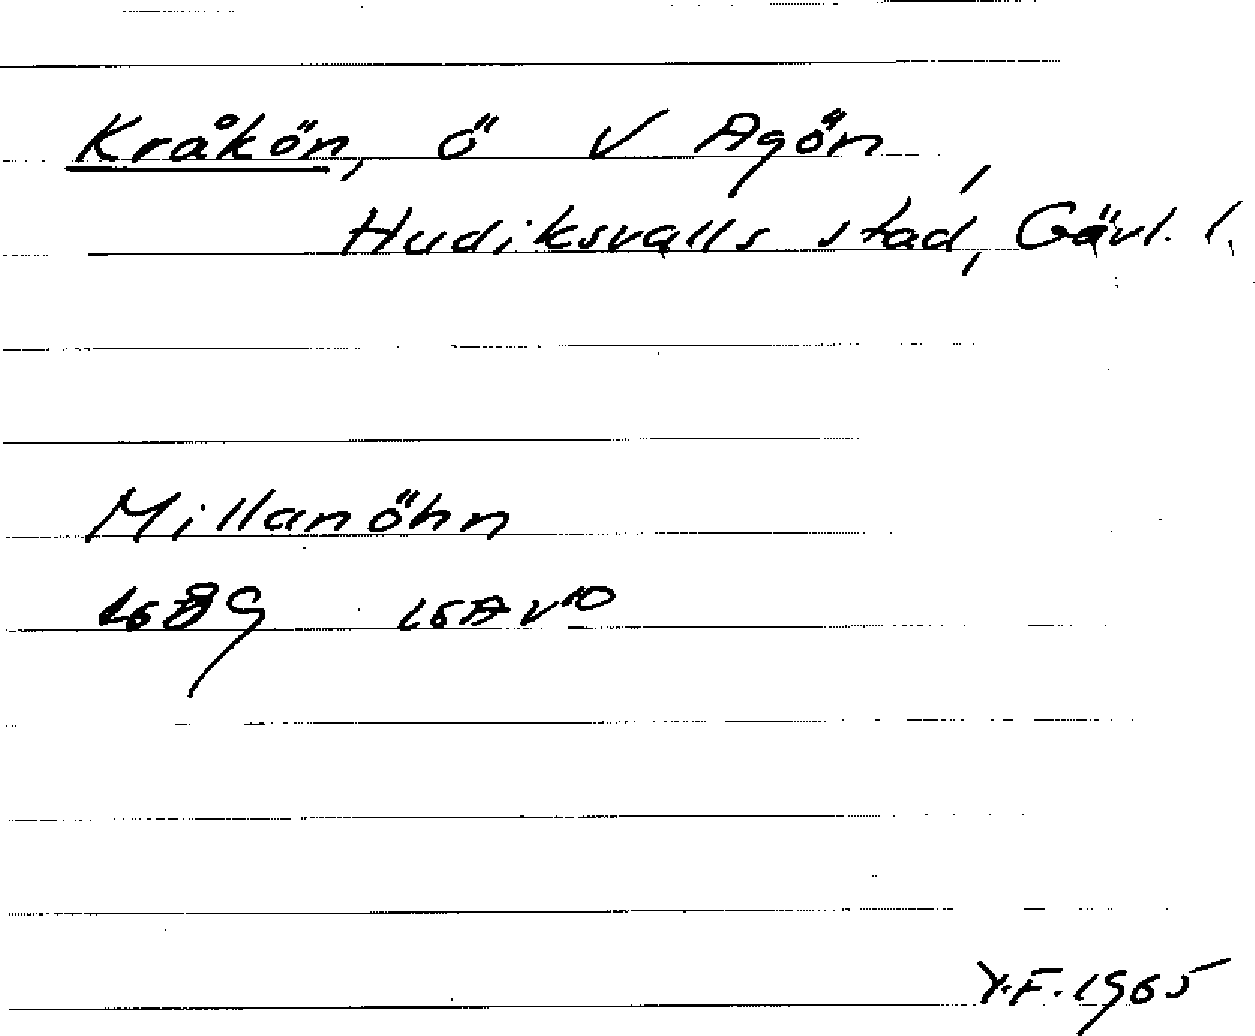 Kråkön, ö V Agön,
Hudiksvalls stad, Gävl. l.
Millanöhn
1689 LSA V10
Y.F. 1965